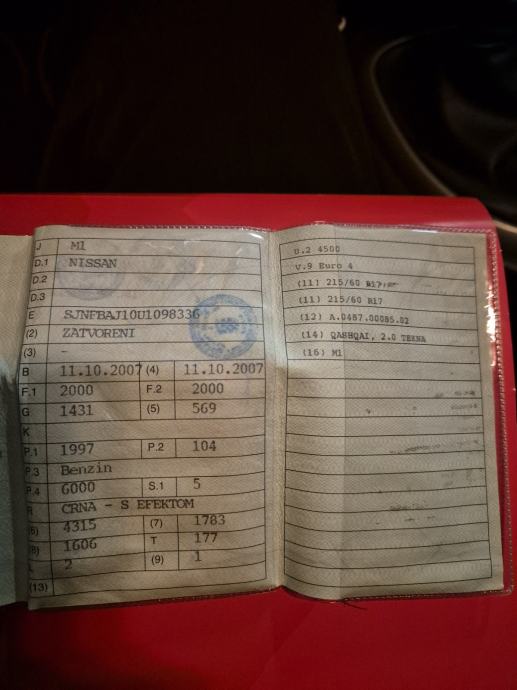 J M1
D.1 NISSAN
D.2
D.3
E SJNFBAJ10U1098336
(2) ZATVORENI
(3) -
B 11.10.2007 (4) 11.10.2007
F.1 2000 F.2 2000
G 1431 (5) 569
K
P.1 1997 P.2 104
P.3 Benzin
P.4 6000 S.1 5
R CRNA - S EFEKTOM
(6) 4315 (7) 1783
(8) 1606 T 177
L 2 (9) 1
(13)
U.2 4500
V.9 Euro 4
(11) 215/60 R17
(11) 215/60 R17
(12) A.0487.00085.02
(14) QASHQAI, 2.0 TEKNA
(16) M1